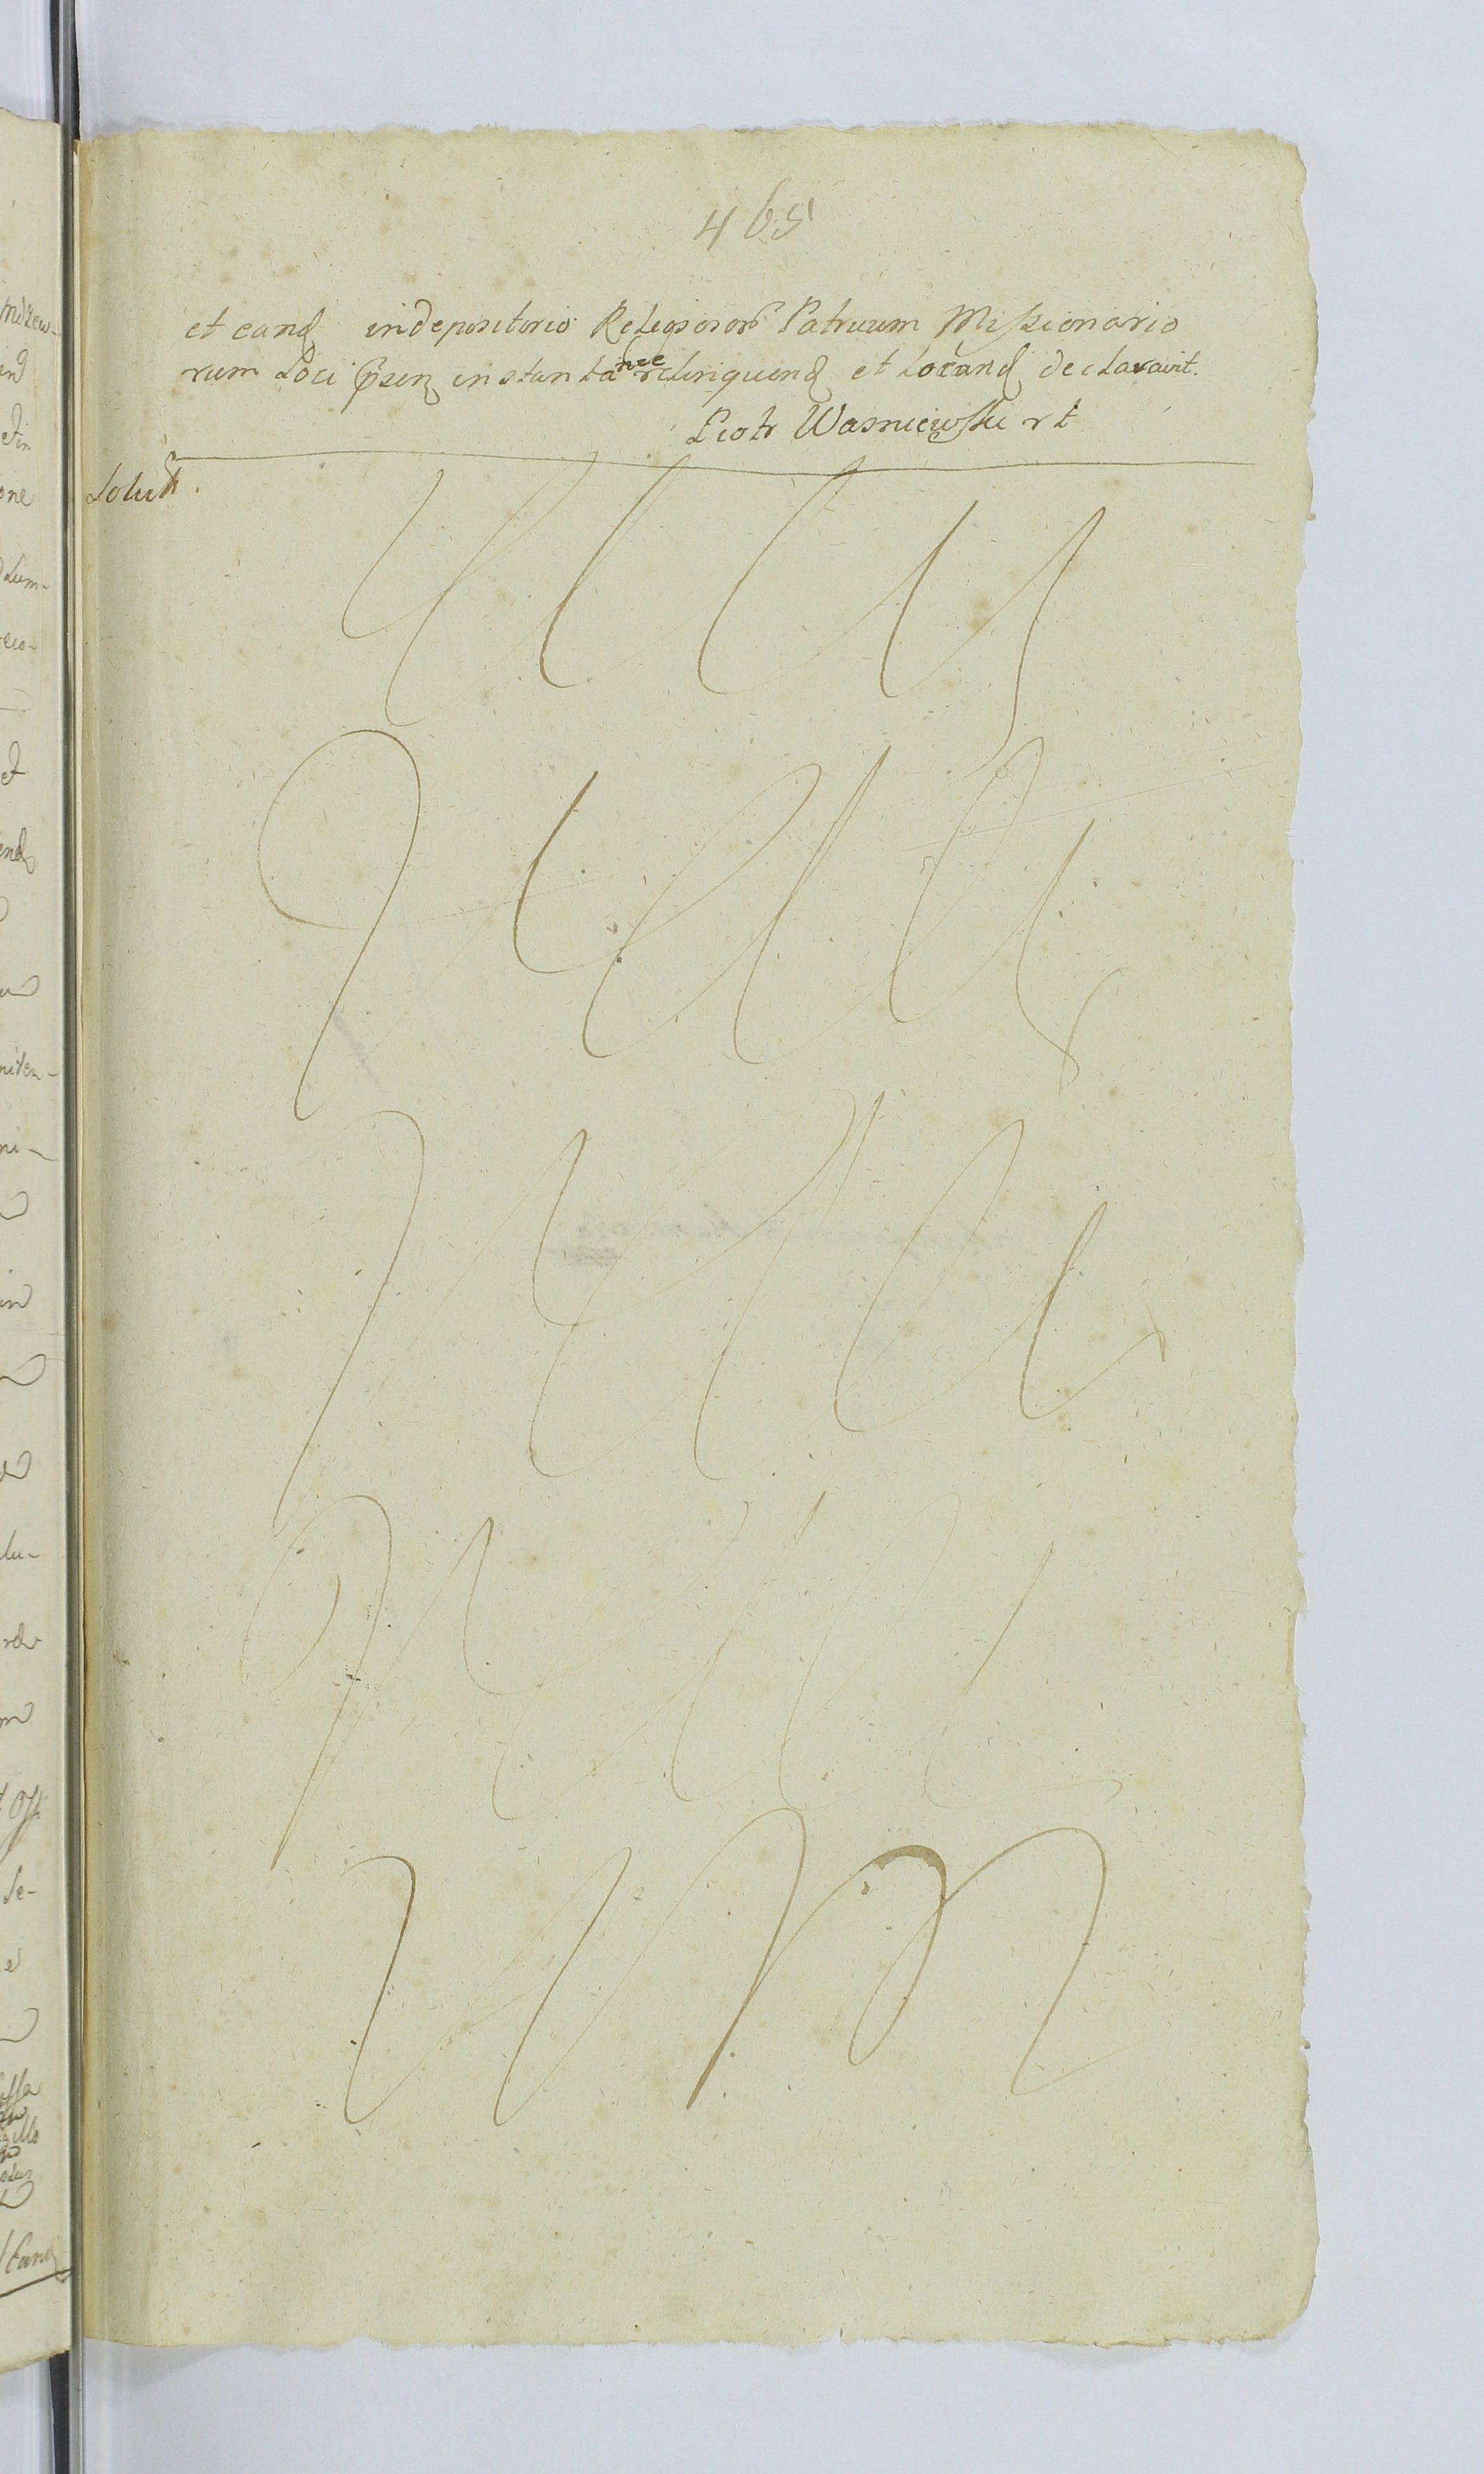 465
et eand indepositorio Religiosor Patruum Missionario
rum Loci p̃sen instanta nee relinquend et Locand declaravit.
Piotr Wasniewski rt
Solut.